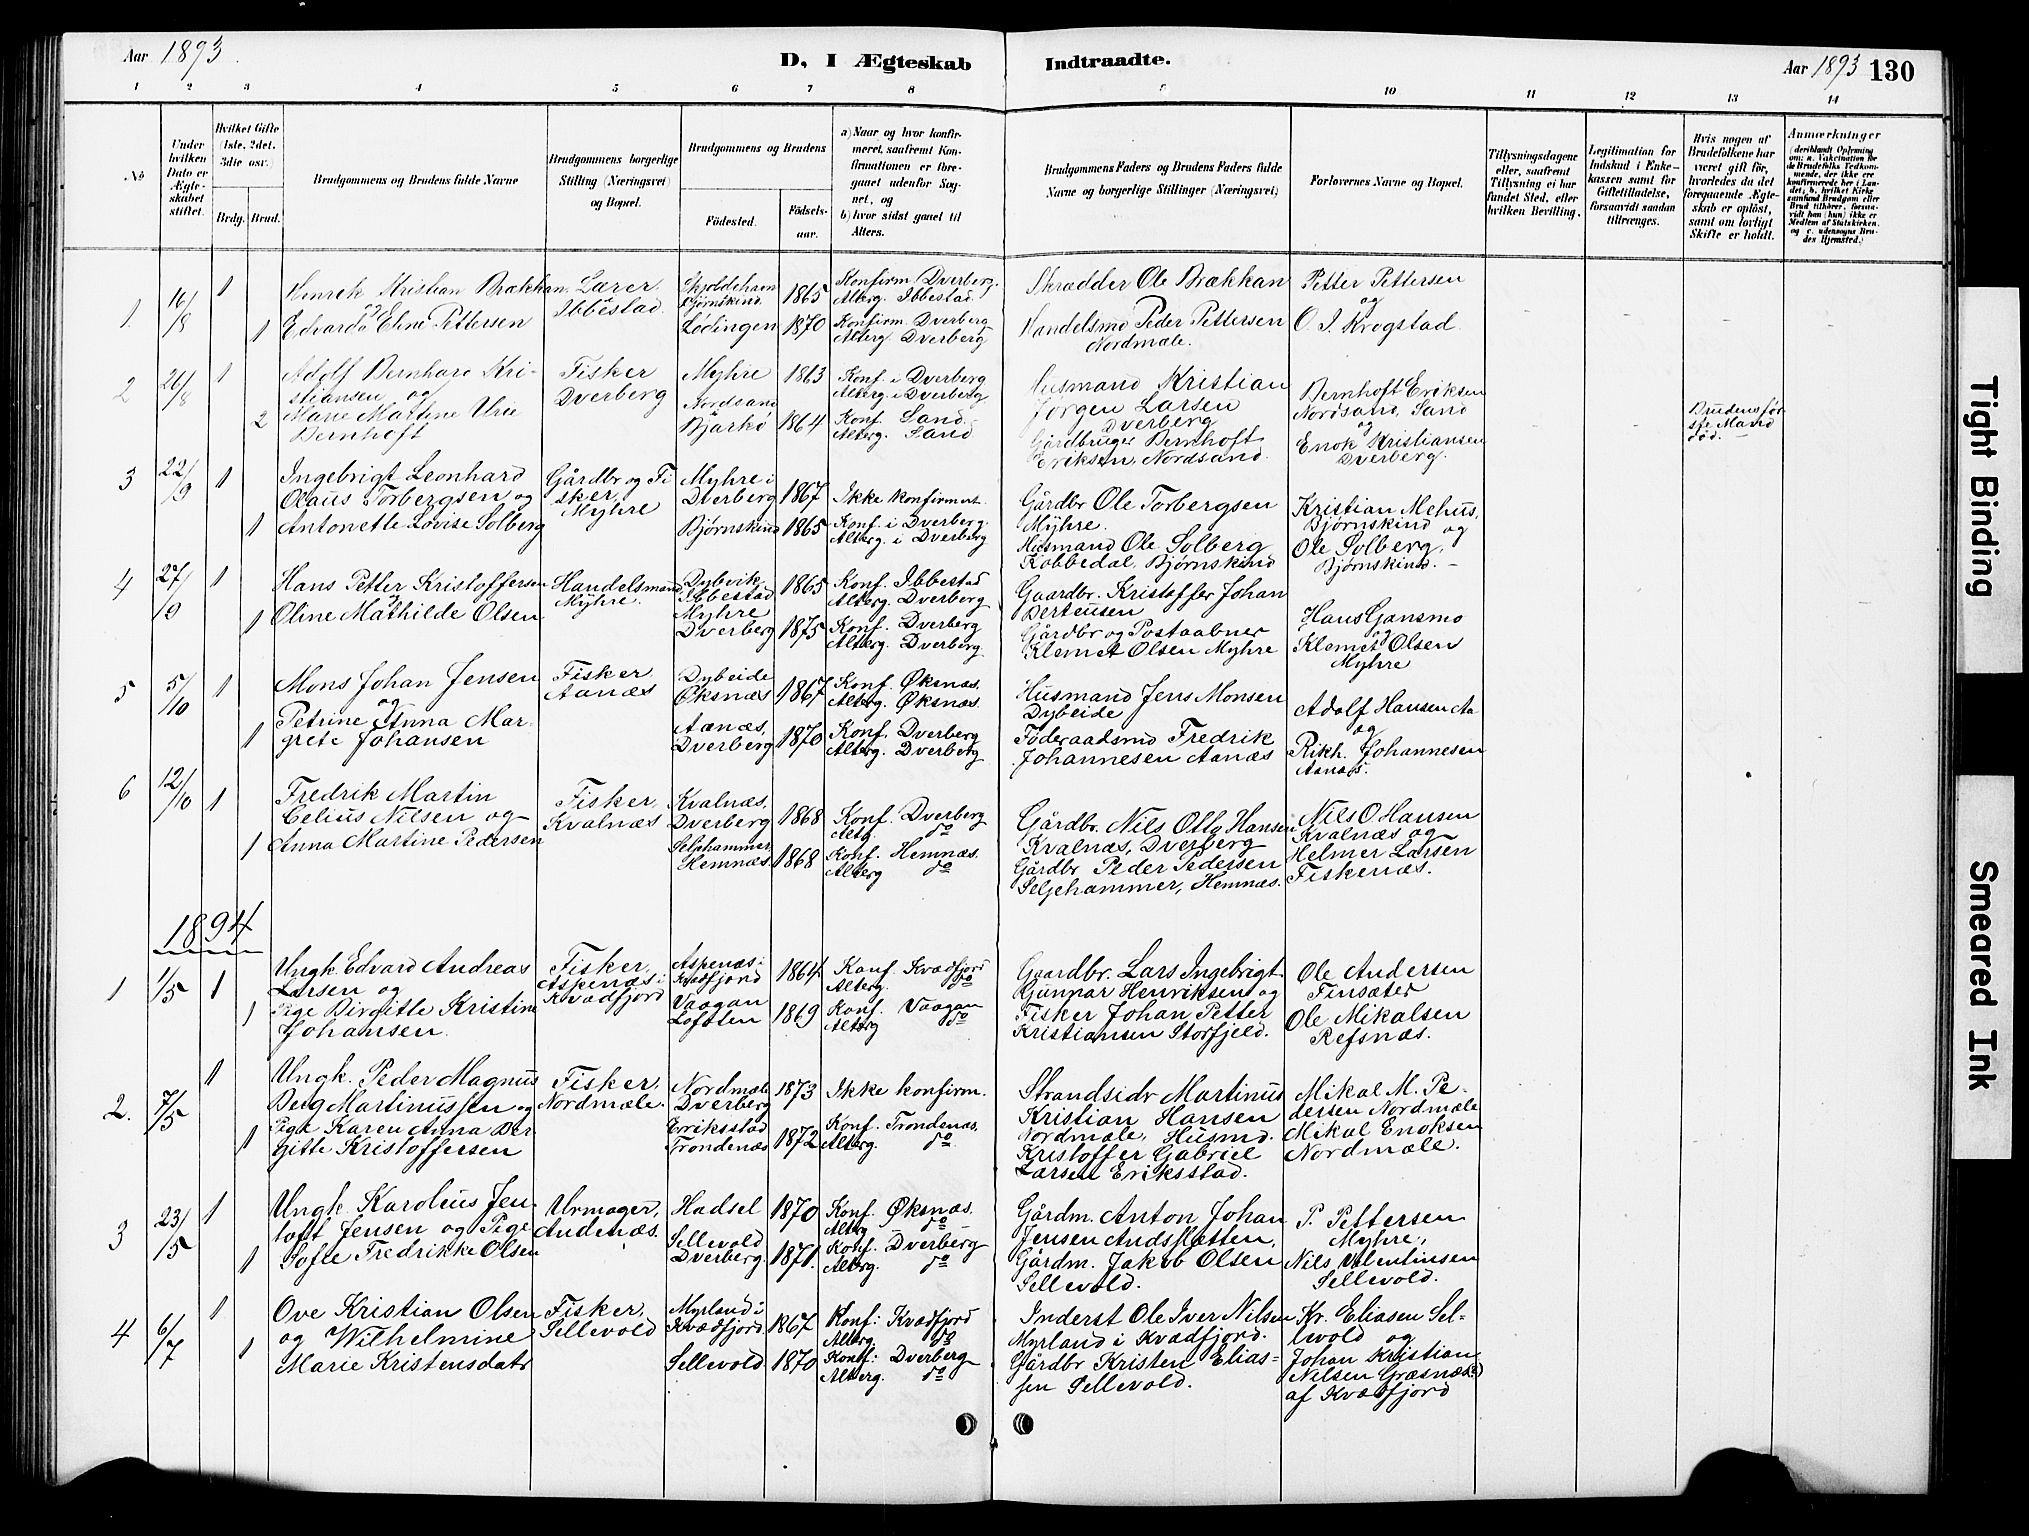 Aar 1893.
D, I Ægteskab Indtraadte.
Aar 1893 130
1 2 3 4 5 6 7 8 9 10 11 12 13 14
No
Under hvilken Dato er Ægteskabet stiftet.
Hvilket Gifte (1ste, 2det, 3die osv.)
Brdg. Brud.
Brudgommens og Brudens fulde Navne
Brudgommens borgerlige Stilling (Næringsvei) og Bopæl.
Brudgommens og Brudens
Fødested. Fødselsaar.
a) Naar og hvor konfirmeret, saafremt Konfirmationen er foregaaet udenfor Sognet, og
b) hvor sidst gaaet til Alters.
Brudgommens Faders og Brudens Faders fulde Navne og borgerlige Stillinger (Næringsvei)
Forlovernes Navne og Bopæl.
Tillysningsdagene eller, saafremt Tillysning ei har fundet Sted, efter hvilken Bevilling.
Legitimation for Indskud i Enkekassen samt for Giftetilladelse, forsaavidt saadan tiltrænges.
Hvis nogen af Brudefolkene har været gift før, hvorledes da det foregaaende Ægteskab er opløst, samt om lovligt Skifte er holdt.
Anmærkninger
1. 16/8 1 Henrik Kristian Brækkan Lærer 1865 Konfirm. Dverberg.
og Ibbestad Alterg. Ibbestad
Skrædder Ole Brækkan Petter Pettersen
og
1 Edvarda Eline Pettersen Lødingen 1870 Konfirm. Dverberg
Altberg Dverberg
Handelsmd Peder Pettersen O. J. Krogstad
Nordmæle.
2 26/8 1 Adolf Bernhard Kri- Fisker Myhre 1863 Konf. i Dverberg
stiansen og Dverberg Altberg. i Dverberg
Husmand Kristian Jørgen Larsen Dverberg
Bernhoft Eriksen Nordsand, Sand og
2 Marie Martine Nordsand Bjarkø 1864 Konf. Sand.
Bernhoft Altberg. Sand
Gårdbruger Bernhoft Eriksen, Nordsand.
Enok Kristiansen Dverberg.
Brudens første Mand død. —
3 22/9 1 Ingebrigt Leonhard Gårdbr og Fi Myhre i
Olaus Torbergsen og sker Dverberg 1867 Ikke konfirmert.
Myhre
Gårdbr Ole Torbergsen Myhre.
Kristian Mehus, Bjørnskind og
1 Antonette Lovise Solberg Bjørnskind 1865 Konf. i Dverberg.
Altberg. i Dverberg
Husmand Ole Solberg Kobbedal, Bjørnskind
Ole Solberg, Bjørnskind. —
4 27/9 1 Hans Petter Kristoffersen Handelsmand Dybvik 1865 Konf. Ibbestad
og Myhre. Ibbestad Altberg. Dverberg
Gaardbr. Kristoffer Johan Berteusen
1 Oline Mathilde Olsen Myhre Dverberg 1875 Konf. Dverberg
Altberg. Dverberg
Gårdbr og Postaabner Klemet Olsen Myhre
Hans Gansmo og Klemet Olsen Myhre
5 5/10 1 Mons Johan Jensen Fisker Dybeide 1867 Konf. Øksnæs.
og Aanæs Øksnæs Altberg. Øksnæs.
Husmand Jens Monsen Dybeide
Adolf Hansen Aa og
1 Petrine Anna Mar- Aanæs, 1870 Konf. Dverberg
grete Johansen Dverberg Altberg. Dverberg
Føderaadsmd Fredrik Johannesen Aanæs
Rikh. Johannesen Aanæs.
6 12/10 1 Fredrik Martin Fisker, Kvalnæs, 1868 Konf. Dverberg
Celius Nilsen og Kvalnæs Dverberg Altg. do
Gårdbr. Nils Otto Hansen Kvalnæs, Dverberg
Nils O. Hansen Kvalnæs og
1 Anna Martine Pedersen Hemnæs. 1868 Konf. Hemnæs.
Altberg do
Gårdbr Peder Pedersen Seljehammer, Hemnæs.
Helmer Larsen Fiskenæs.
1894
1 1/5 1 Ungk. Edvard Andreas Fisker, Aspenæs i 1864 Konf. Kvædfjord
Larsen og Aspenæs i Kvædfjord Kvædfjord Altberg. do
Gaardbr. Lars Ingebrigt Gunnar Henriksen og
Ole Andersen Finsæter
1 Pige Birgitte Kristine Vaagan 1869 Konf. Vaagan
Johansen. Lofoten Altberg do
Fisker Johan Petter Kristiansen Storfjeld.
Ole Mikalsen Refsnæs.
2. 7/5 1 Ungk. Peder Magnus Fisker, Nordmæle 1873 Ikke konfirm.
Berg Martinussen og Nordmæle. Dverberg
Strandsidr Martinus Kristian Hansen Nordmæle,
Mikal M. Pedersen Nordmæle
1 Pige Karen Anna Ber Erikstad 1872 Konf. Trondenæs.
gitte Kristoffersen Trondenæs Altberg. do
Husmd. Kristoffer Gabriel Larsen Eriksstad.
Mikal Enoksen Nordmæle.
3 23/5 1 Ungk. Karolius Jen- Urmager, Hadsel 1870 Konf. Øksnæs.
toft Jensen og Pige Andenæs. Altg do
Gårdm. Anton Johan Jensen Andsletten,
P. Pettersen Myhre,
1 Sofie Fredrikke Olsen Sellevold Dverberg. 1871. Konf. Dverberg
Altberg. do
Gårdm. Jakob Olsen Sellevold.
Nils Valentinsen Sellevold.
4 6/7 1 Ove Kristian Olsen Fisker, Myrland i 1867 Konf: Kvædfjord
og Wilhelmine Sellevold Kvædfjord Altberg do
Inderst Ole Iver Nilsen Myrland i Kvædfjord.
Kr. Eliasen Sellevold og
1 Marie Kristensdatr Sellevold 1870 Konf: Dverberg
Altberg. do
Gårdbr Kristen Eliassen Sellevold.
Johan Kristian Nilsen Græsnæs(?) af Kvædfjord
Tight Binding
Smeared Ink